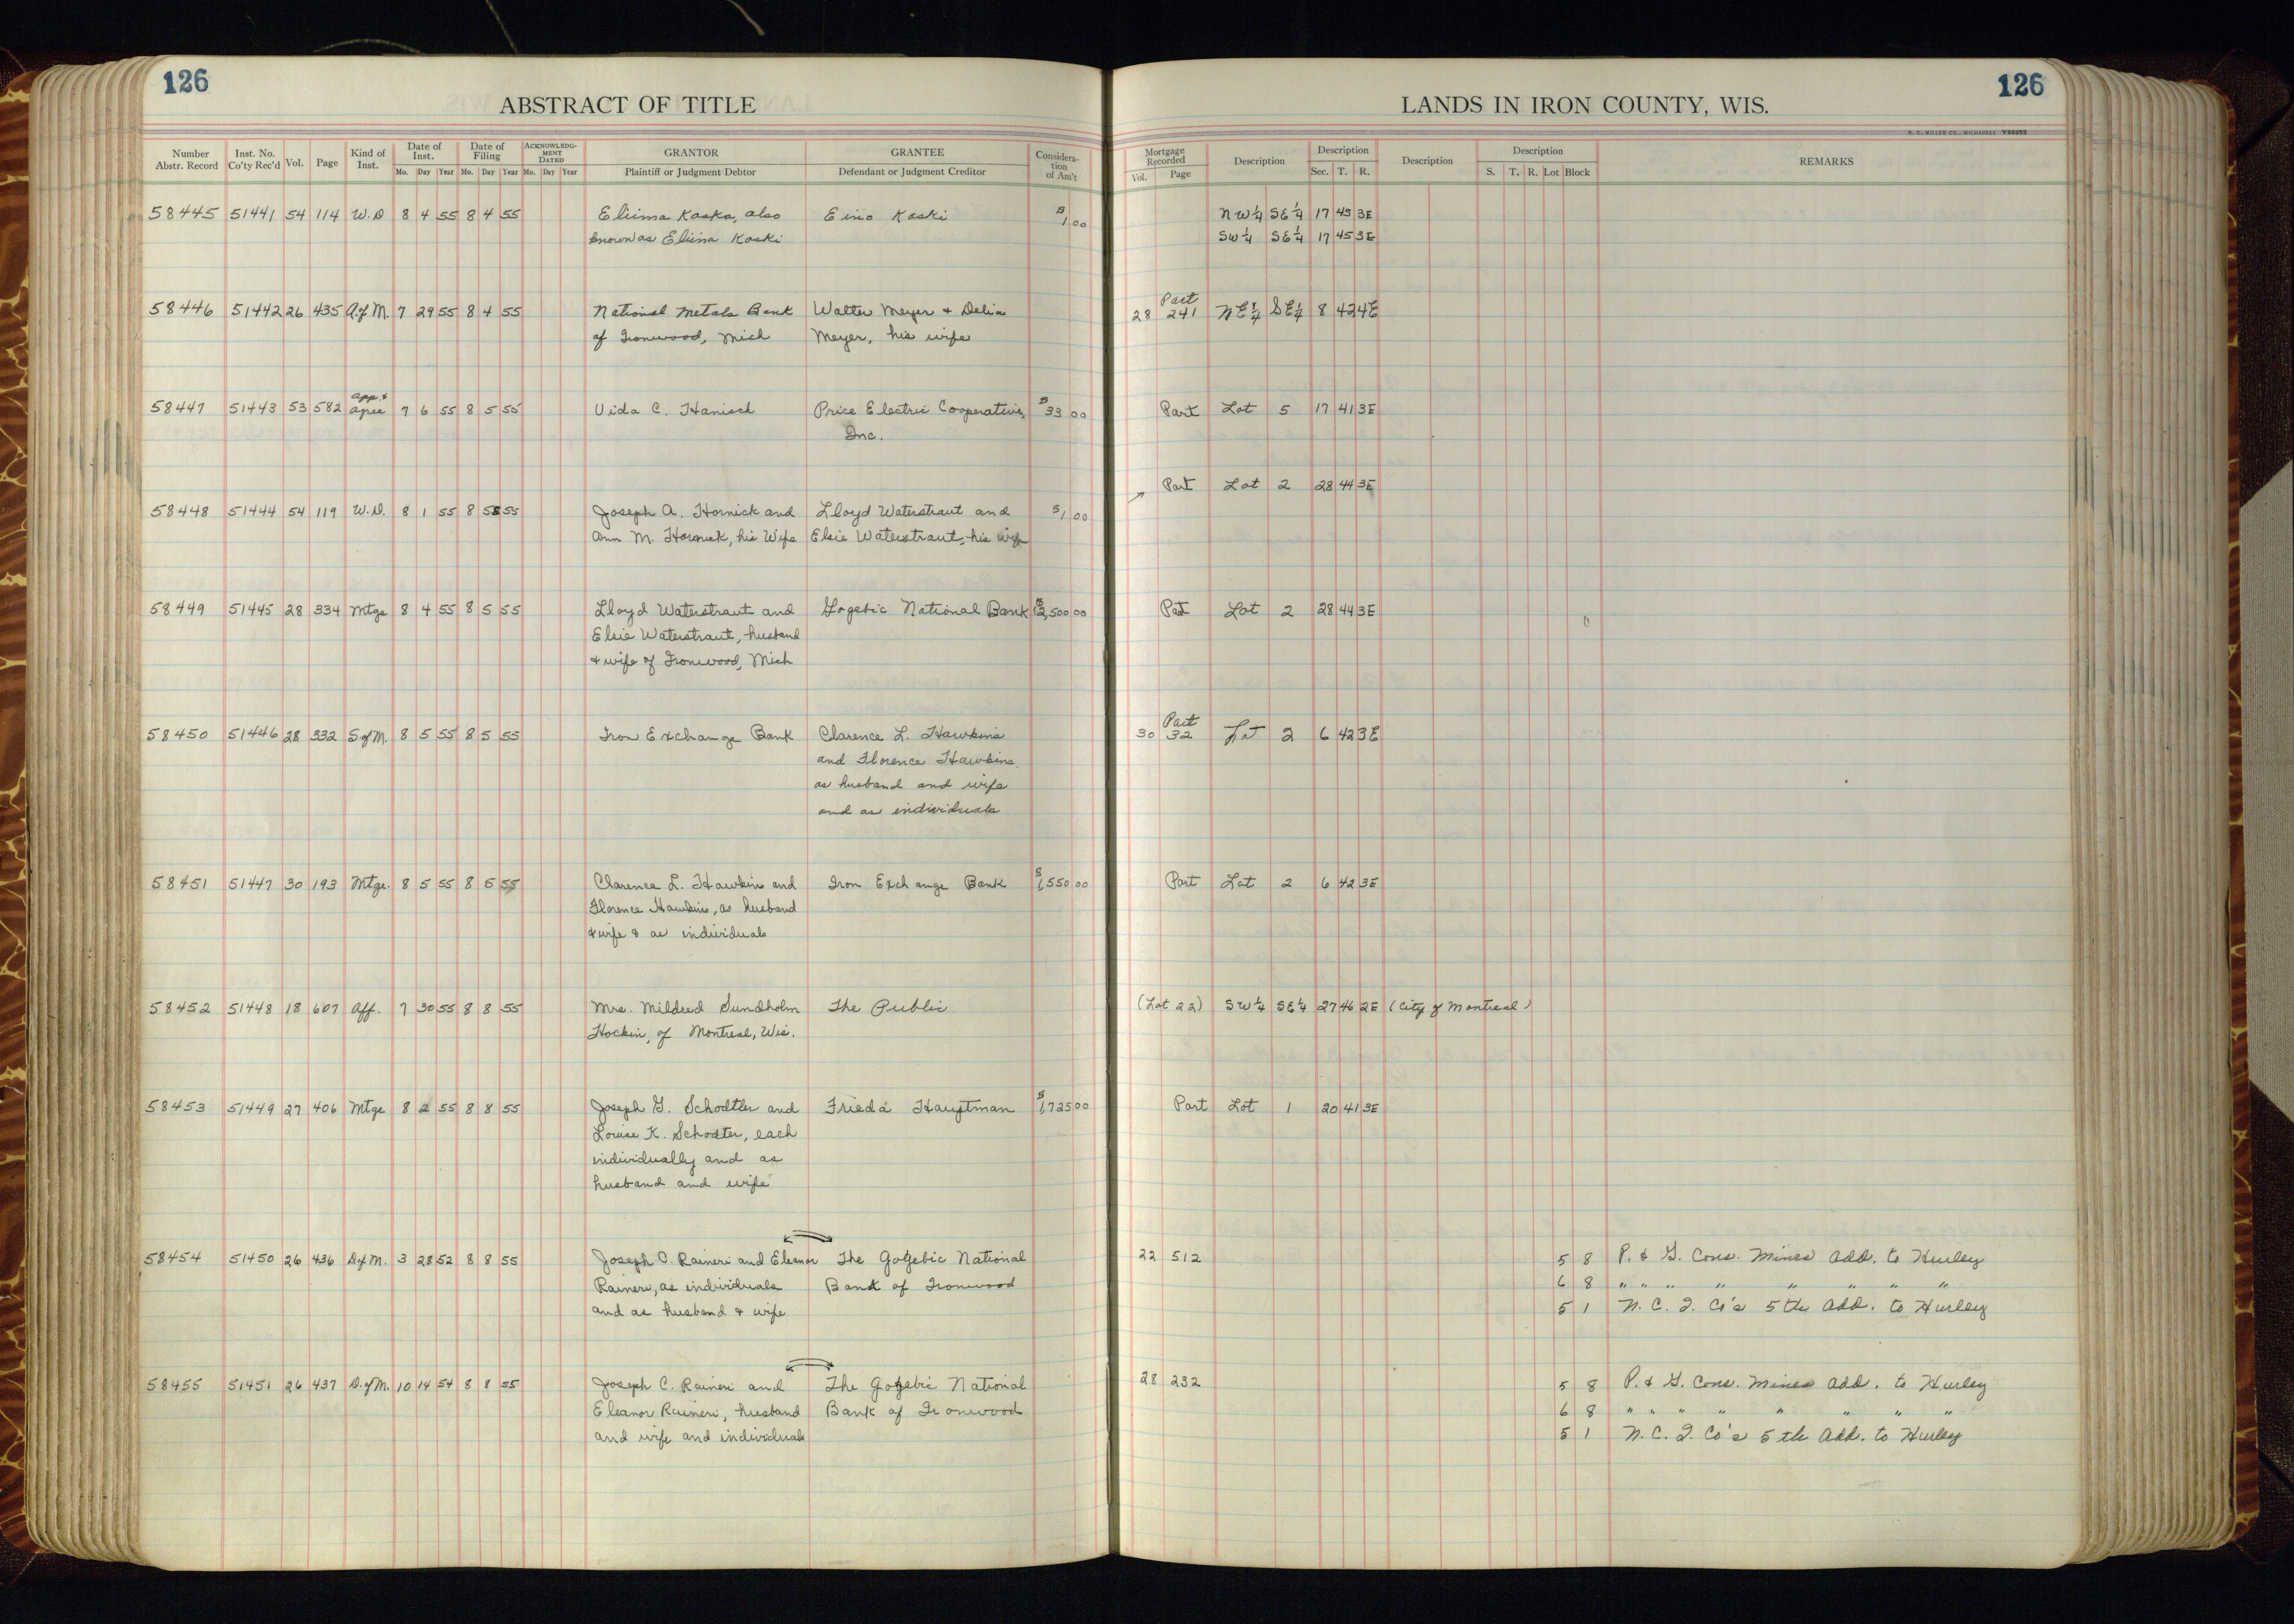 126
ABSTRACT OF TITLE
Number Abstr. Record Inst. No. Co'ty Rec'd Vol. Page Kind of Inst. Date of Inst. Mo. Day Year Date of Filing Mo. Day Year ACKNOWLEDG-MENT DATED Mo. Day Year GRANTOR Plaintiff or Judgment Debtor GRANTEE Defendant or Judgment Creditor Considera-tion of Am't
58445 51441 54 114 W.D 8 4 55 8 4 55 Eliina Kaska, also Eino Koski $1.00
known as Eliina Koski
58446 51442 26 435 A.of M. 7 29 55 8 4 55 National Metals Bank Walter Meyer & Delia
of Ironwood, Mich Meyer, his wife
58447 51443 53 582 App. & Agree 7 6 55 8 5 55 Vida C. Hanisch Price Electric Cooperative, $33 00
Inc.
58448 51444 54 119 W.D. 8 1 55 8 5 55 Joseph A. Hornick and Lloyd Waterstraut and $1 00
Ann M. Hornick, his Wife Elsie Waterstraut, his wife
58449 51445 28 334 Mtge 8 4 55 8 5 55 Lloyd Waterstraut and Gogebic National Bank $2,500 00
Elsie Waterstraut, husband
& wife of Ironwood, Mich
58450 51446 28 332 S of M. 8 5 55 8 5 55 Iron Exchange Bank Clarence L. Hawkins
and Florence Hawkins.
as husband and wife
and as individuals
58451 51447 30 193 Mtge. 8 5 55 8 5 55 Clarence L. Hawkins and Iron Exchange Bank $1,550 00
Florence Hawkins, as husband
& wife & as individuals
58452 51448 18 607 Aff. 7 30 55 8 8 55 Mrs. Mildred Sundholm The Public
Hockin, of Montreal, Wis.
58453 51449 27 406 Mtge 8 2 55 8 8 55 Joseph G. Schodtler and Frieda Hauptman $1,725 00
Louise K. Schodter, each
individually and as
husband and wife
58454 51450 26 436 D of M. 3 28 52 8 8 55 Joseph C. Raineri and Eleanor The Gogebic National
Raineri, as individuals Bank of Ironwood
and as husband & wife
58455 51451 26 437 D. of M. 10 14 54 8 8 55 Joseph C. Raineri and The Gogebic National
Eleanor Raineri, husband Bank of Ironwood
and wife and individuals
126
LANDS IN IRON COUNTY, WIS.
Mortgage Recorded Vol. Page Description Description Sec. T. R. Description Description S. T. R. Lot Block REMARKS
NW¼ SE¼ 17 45 3E
SW¼ SE¼ 17 45 3E
Part
28 241 NE¼ SE¼ 8 42 4E
Part Lot 5 17 41 3E
Part Lot 2 28 44 3E
Part Lot 2 28 44 3E
Part
30 32 Lot 2 6 42 3E
Part Lot 2 6 42 3E
(Lot 22) SW¼ SE¼ 27 46 2E (City of Montreal)
Part Lot 1 20 41 3E
22 512 5 8 P. & G. Cons. Mines Add. to Hurley
6 8 " " " " " " " "
5 1 N. C. I. Co's 5th Add. to Hurley
28 232 5 8 P. & G. Cons. Mines Add. to Hurley
6 8 " " " " " " " "
5 1 N. C. I. Co's 5th Add. to Hurley